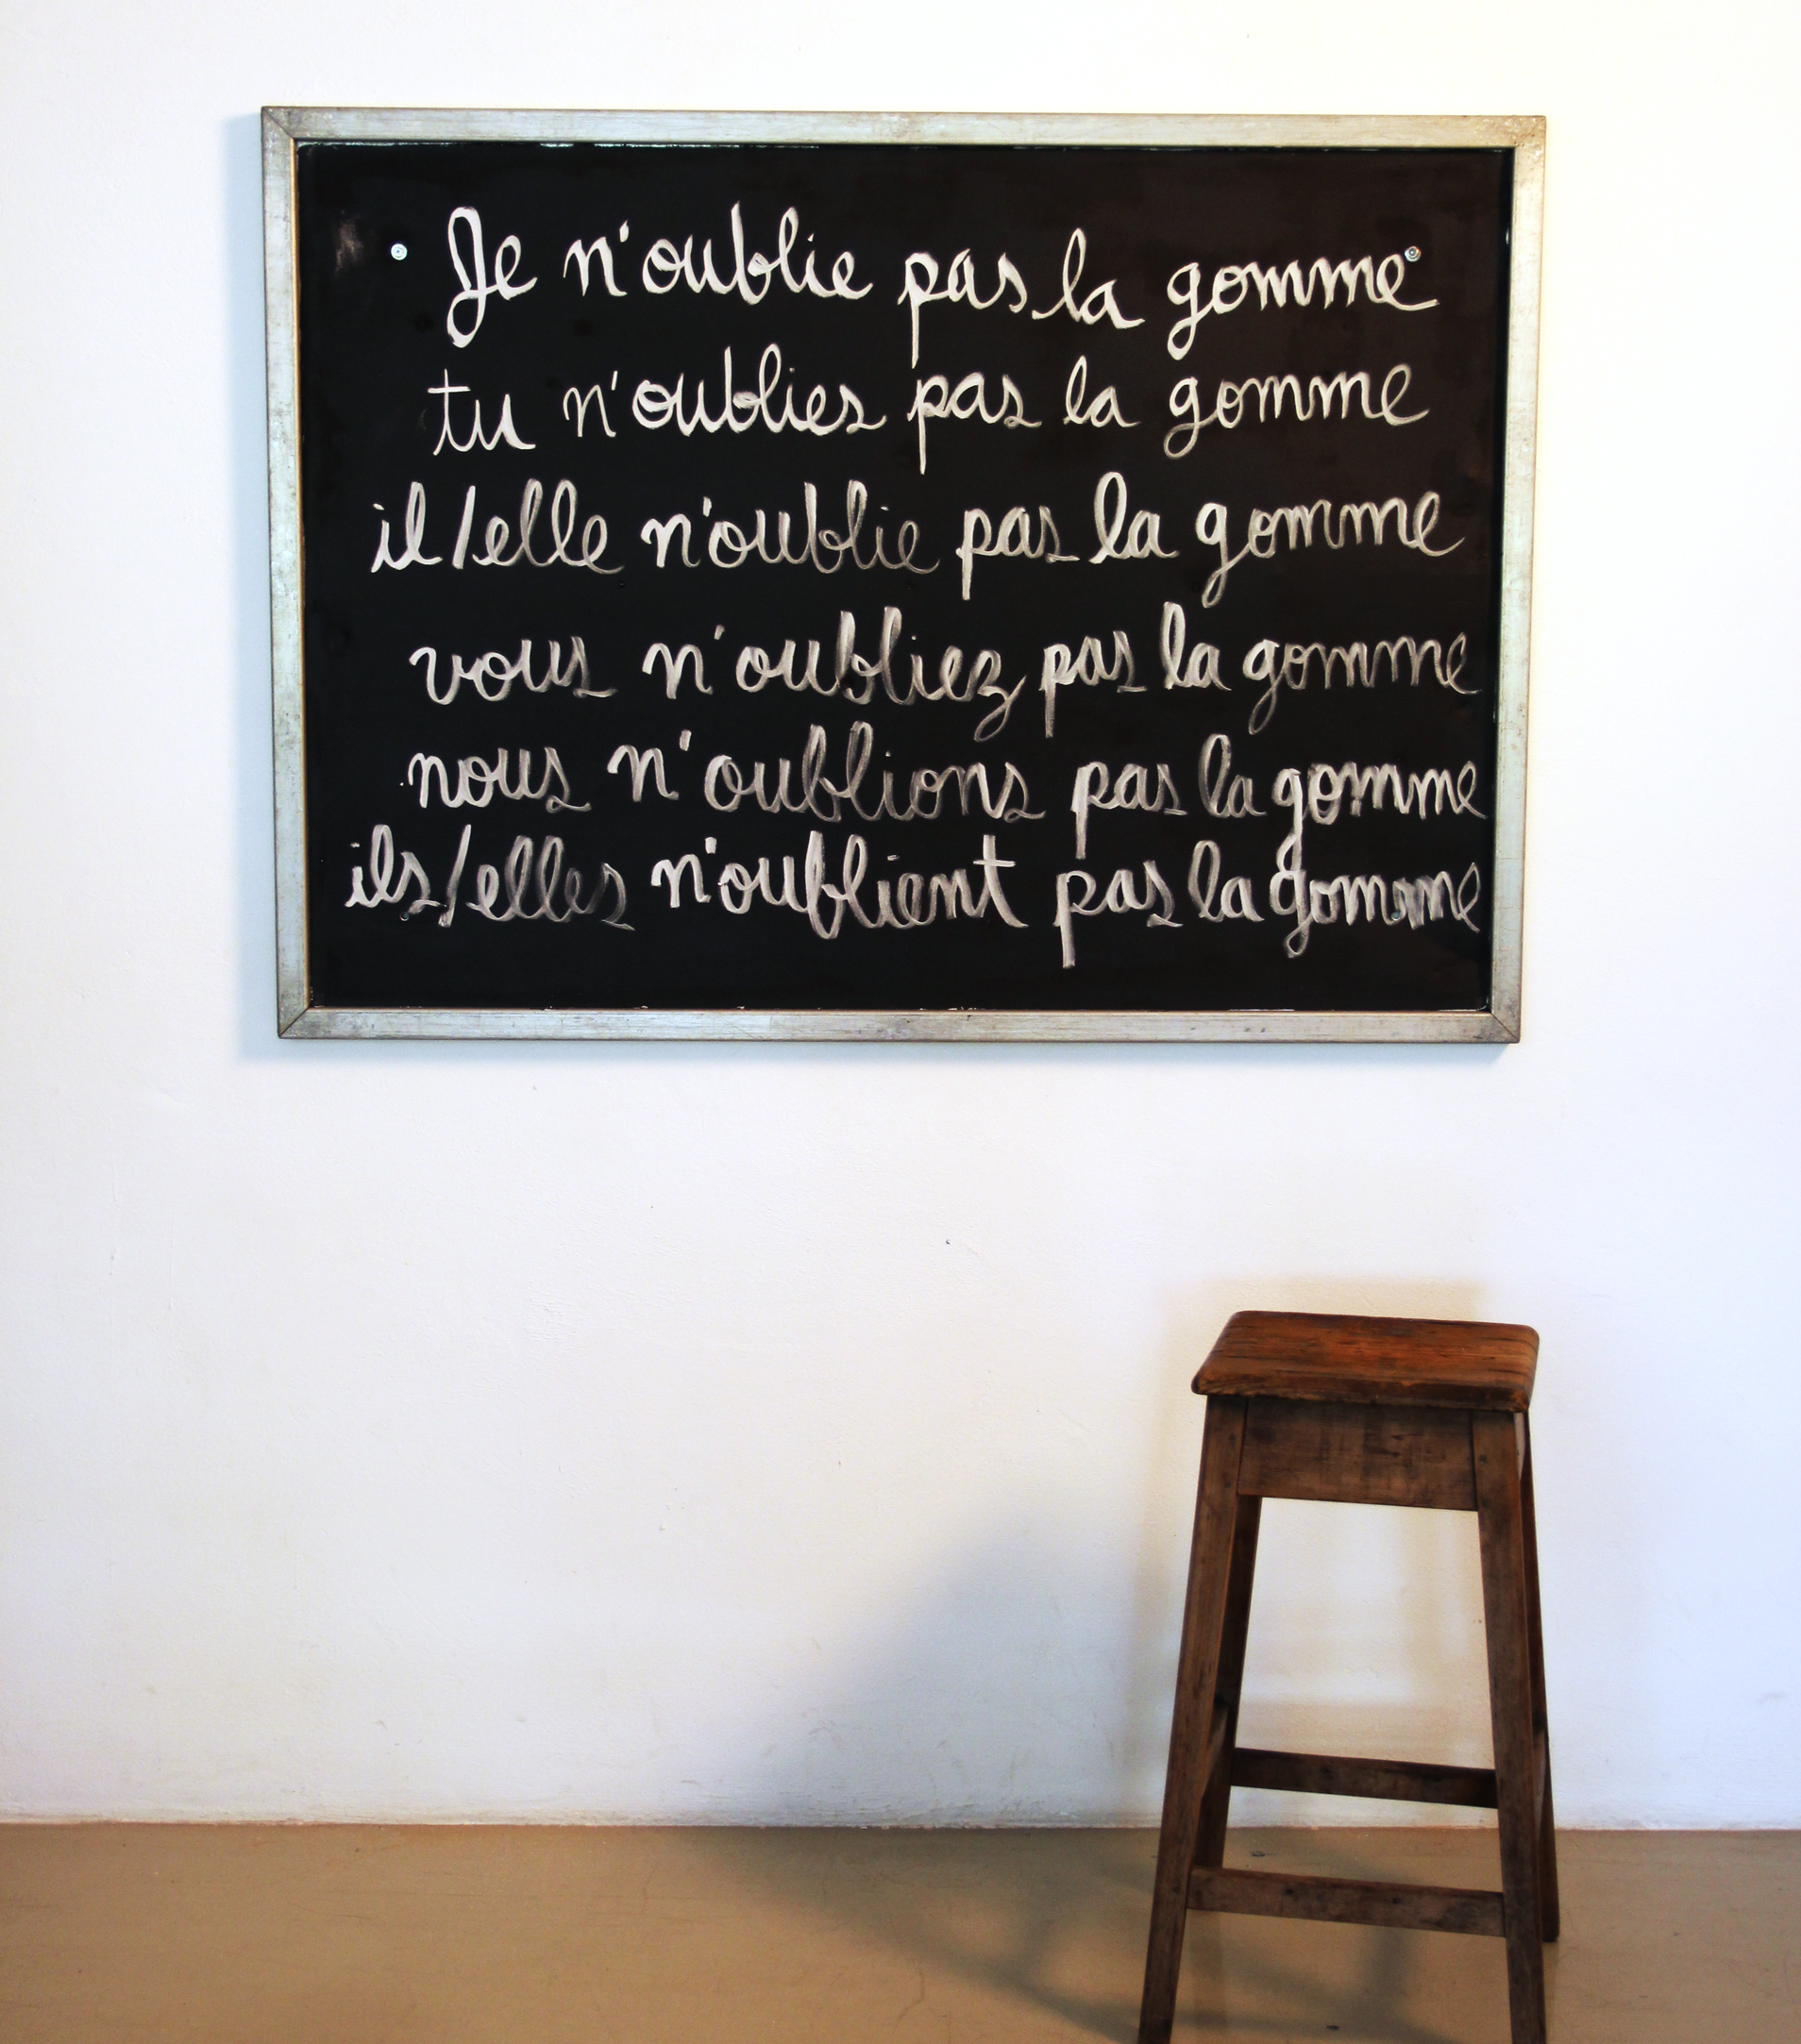 Je n'oublie pas la gomme
tu n'oublies pas la gomme
il/elle n'oublie pas la gomme
vous n'oubliez pas la gomme
nous n'oublions pas la gomme
ils/elles n'oublient pas la gomme